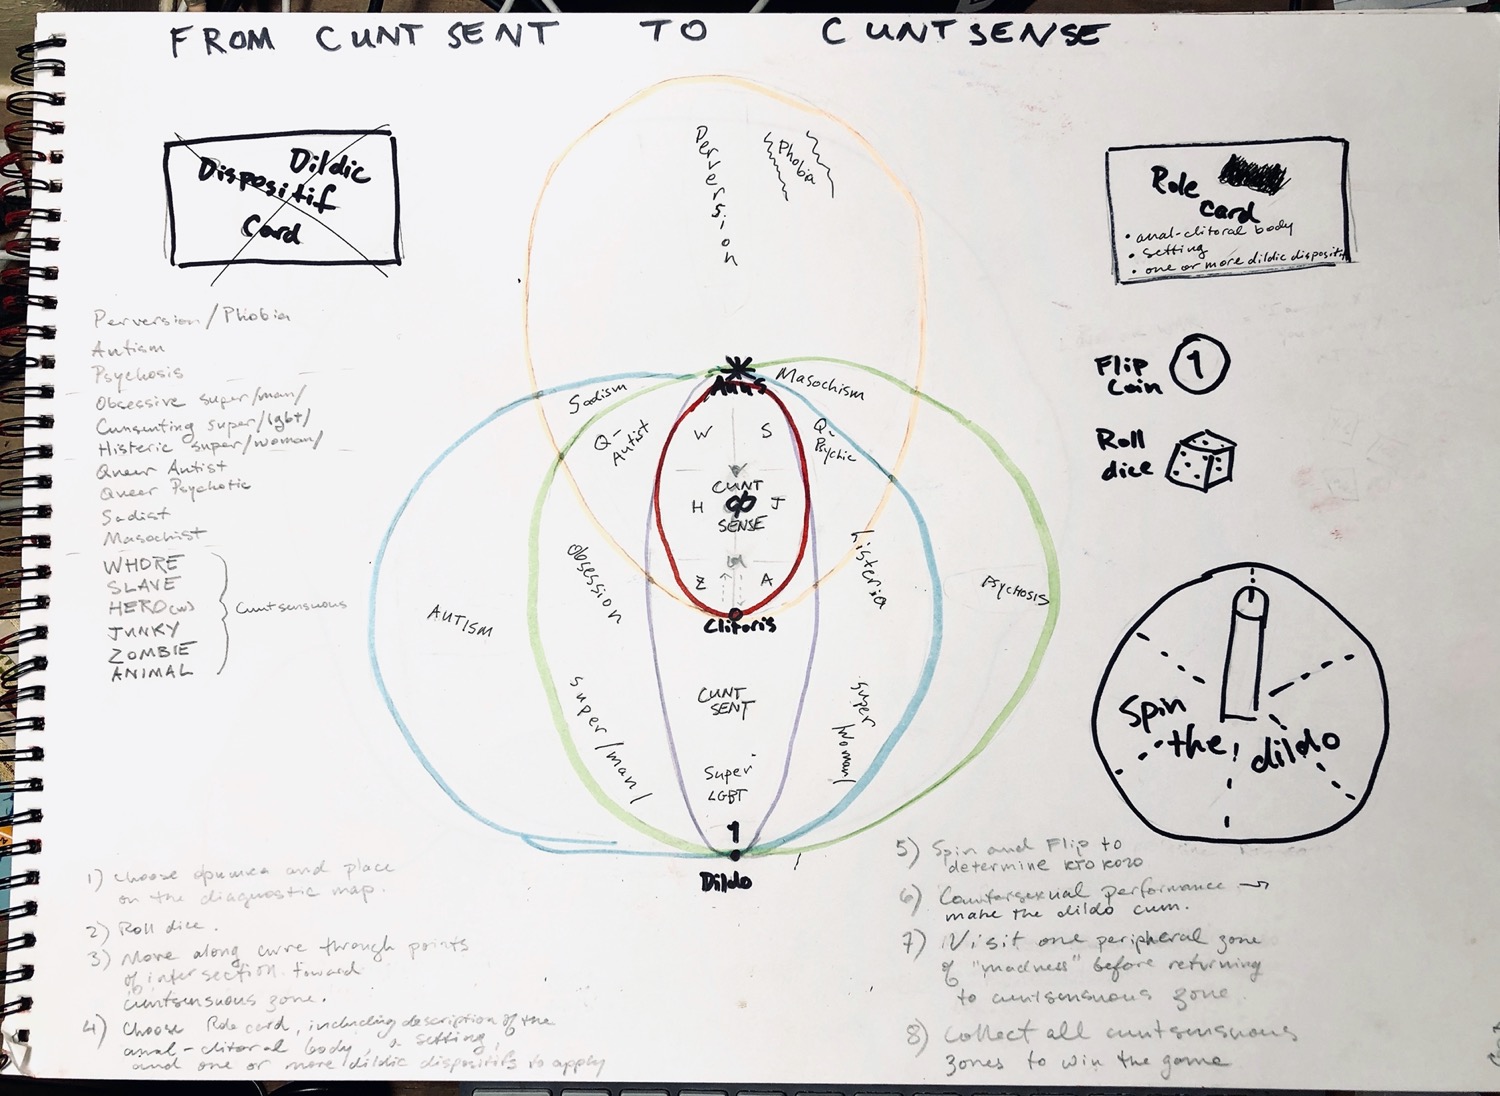 FROM CUNTSENT TO CUNTSENSE
Dildic
Dispositif
Card
Perversion
Phobia
Role
card
• anal-clitoral body
• setting
• one or more dildic dispositif
Perversion/Phobia
Autism
Psychosis
Obsessive super/man/
Cunsenting super/lgbt/
Histeric super/woman/
Queer Autist
Queer Psychotic
Sadist
Masochist
WHORE
SLAVE
HERO(in)
JUNKY
ZOMBIE
ANIMAL
Cuntsensuous
Flip
Coin
1
Roll
dice
Anus
Sadism
Masochism
Q-
Autist
Q-
Psychic
W S
CUNT
SENSE
H J
Z A
Clitoris
AUTISM
Obsession
histeria
PSYCHOSIS
super/man/
CUNT
SENT
super
woman/
Super
LGBT
1
Dildo
Spin
the dildo
1) Choose фишка and place
on the diagnostic map.
2) Roll dice.
3) Move along curve through points
of intersection toward
cuntsensuous zone.
4) Choose Role card, including description of the
anal-clitoral body, a setting,
and one or more dildic dispositifs to apply
5) Spin and Flip to
determine кто кого
6) Countersexual performance →
make the dildo cum.
7) Visit one peripheral zone
of "madness" before returning
to cuntsensuous zone.
8) Collect all cuntsensuous
zones to win the game